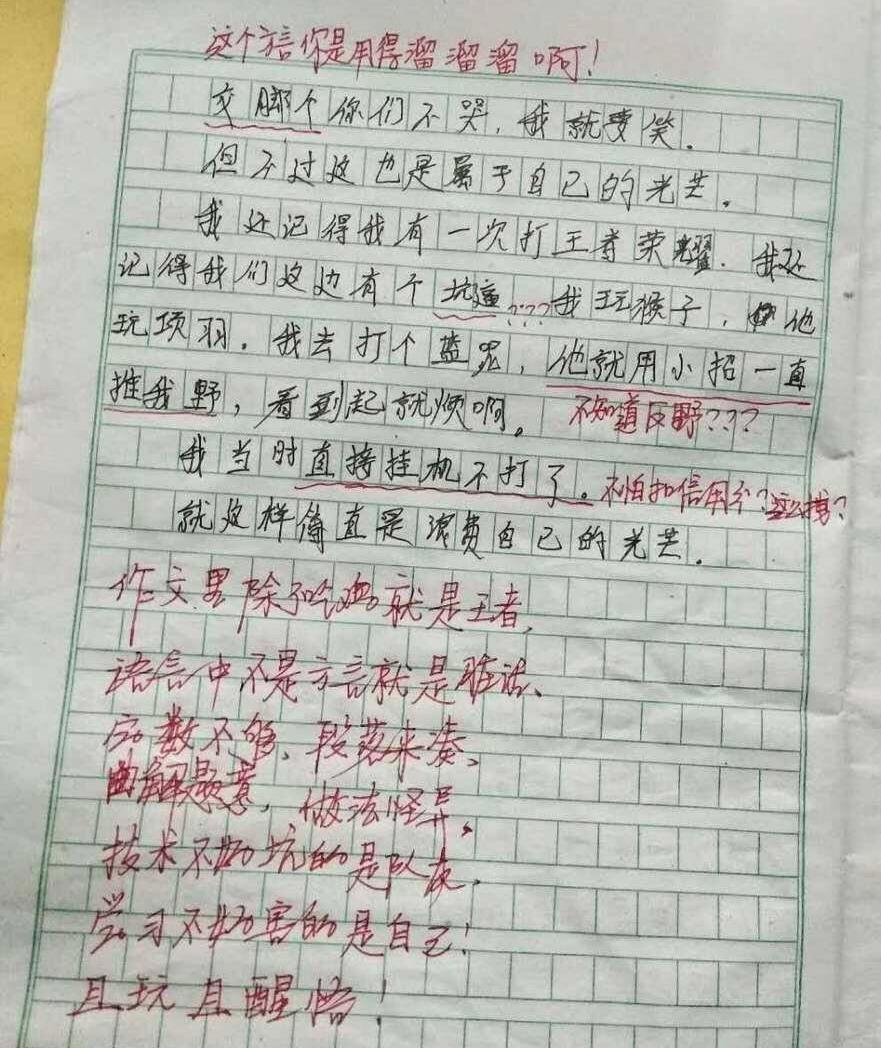 这个方言你是用得溜溜溜啊!
交脚个你们不哭,我就要笑.
但不过这也是属于自己的光芒。
我还记得我有一次打王者荣耀.我还
记得我们这边有个坑逼???我玩猴子,他
玩项羽.我去打个蓝爸,他就用小招一直
推我野,看到起就烦啊。不知道反野???
我当时直接挂机不打了。不怕扣信用分?这么拽?
就这样简直是浪费自己的光芒.
作文里除了吃鸡就是王者,
语言中不是方言就是脏话、
字数不够,段落来凑、
曲解题意,做法怪异,
技术不好坑的是队友,
学习不好害的是自己!
且玩且醒悟!